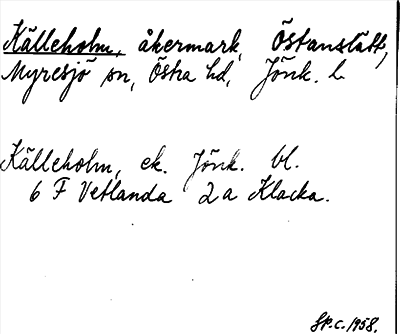 Källeholm, åkermark, Östanslätt,
Myresjö sn, Östra hd, Jönk. l.
Källeholm, ek. Jönk. bl.
6 F Vetlanda 2 a Klacka.
1958.